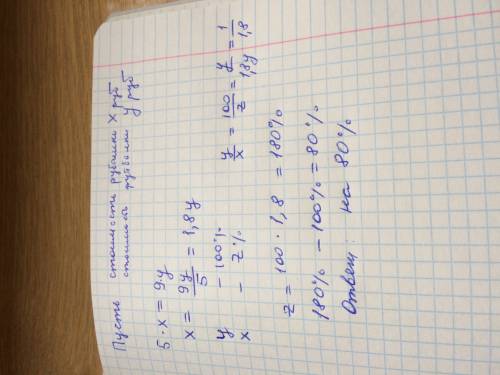 Пусть стоимость рубашки x руб
стоимость футболки y руб
5·x = 9y
x = 9y/5 = 1,8y
y – 100%
x – z%
y/x = 100/z = y/1,8y = 1/1,8
z = 100·1,8 = 180%
180% – 100% = 80%
Ответ: на 80%